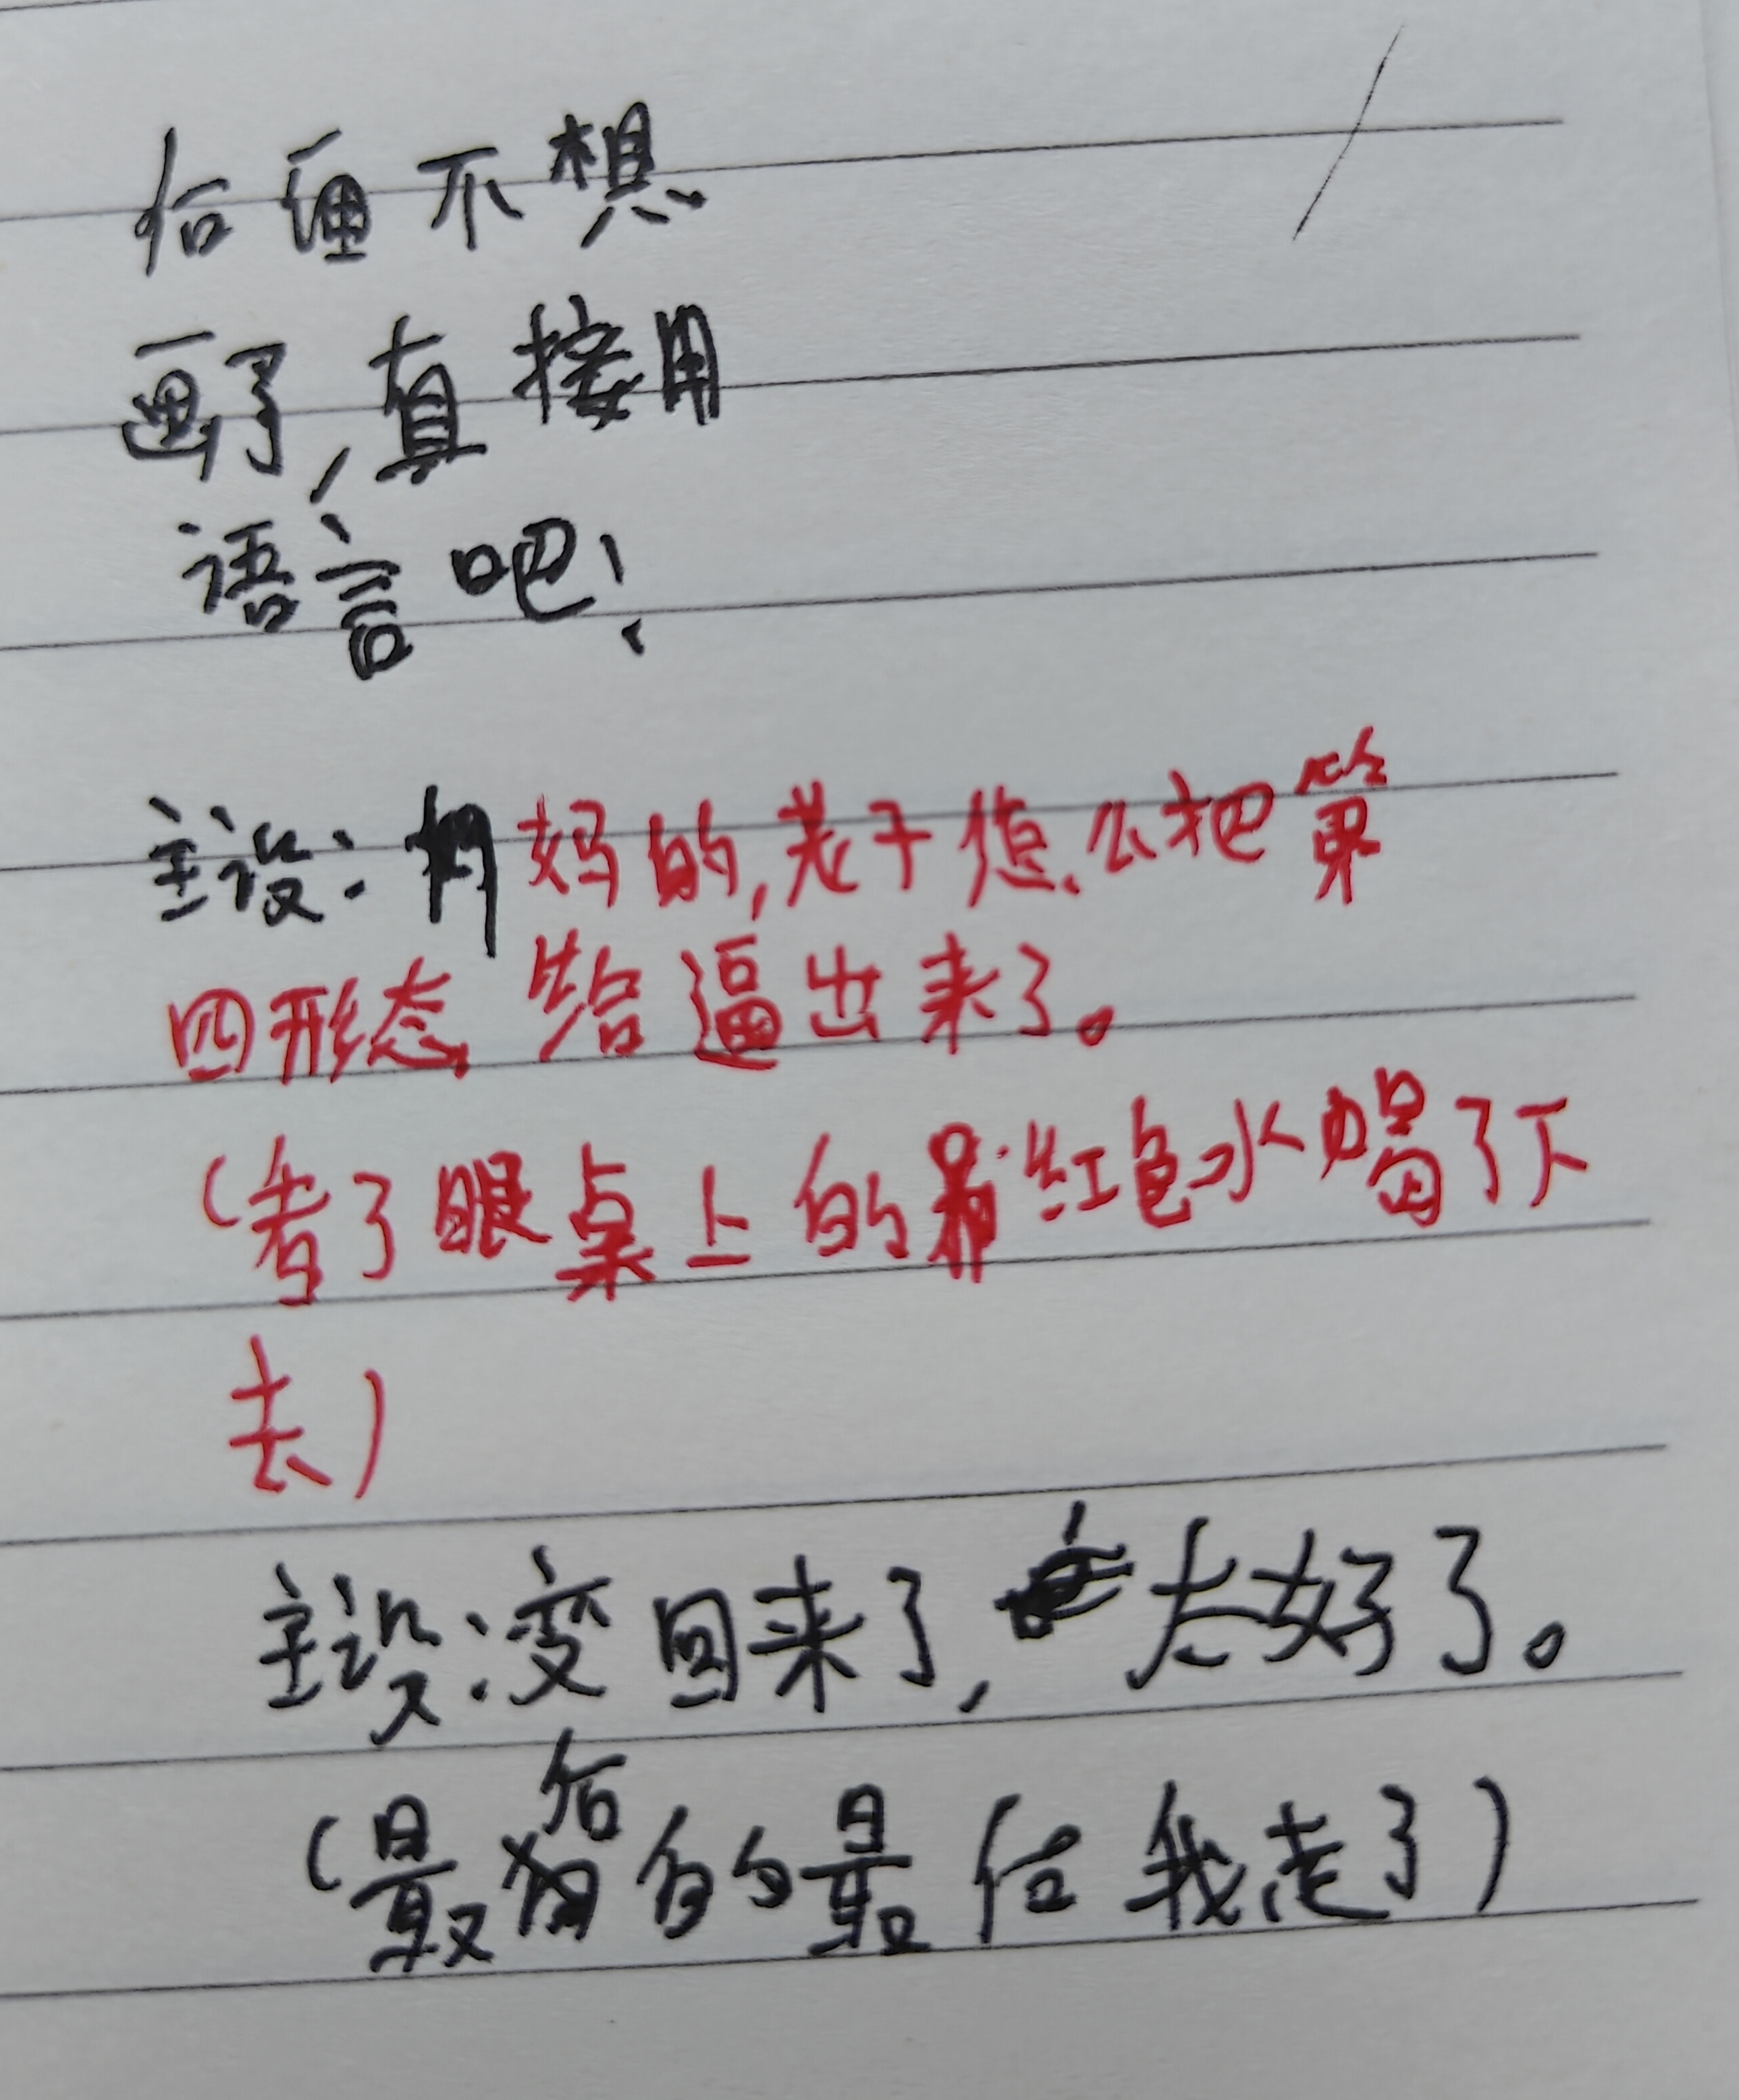 后面不想
画了,直接用
语言吧!
主设:妈的,老子怎么把第
四形态给逼出来了。
(看了眼桌上的红色水喝了下
去)
主设:变回来了,太好了。
(最后的最后我走了)